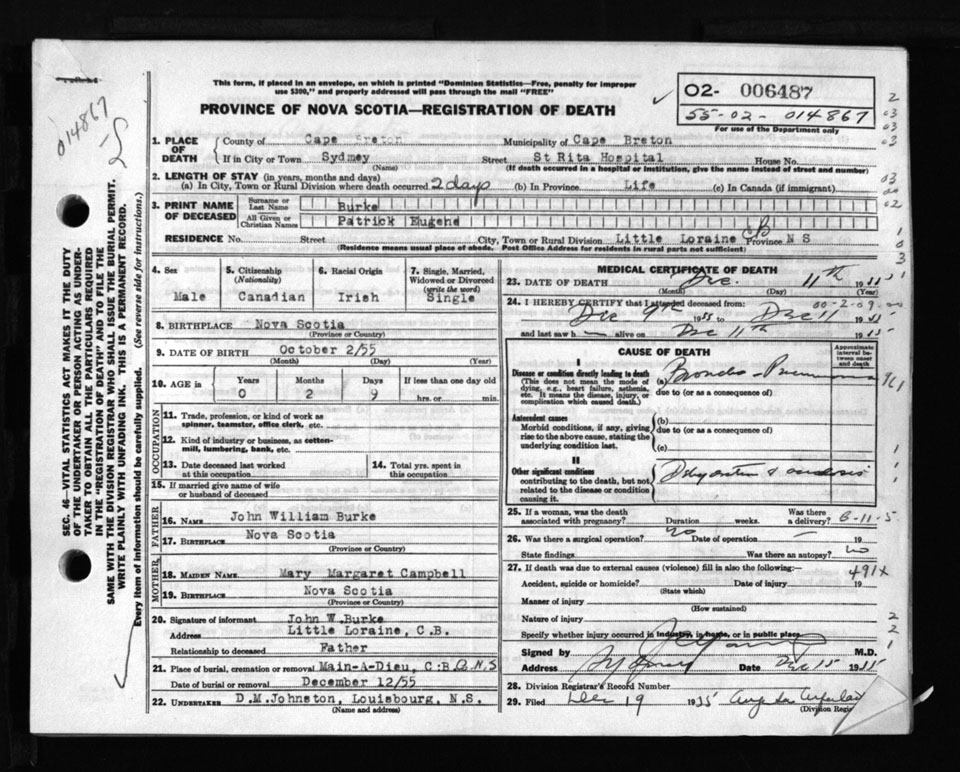 014867
This form, if placed in an envelope, on which is printed "Dominion Statistics—Free, penalty for improper
use $300," and properly addressed will pass through the mail "FREE"
02- 006487
55-02-014867
For use of the Department only
PROVINCE OF NOVA SCOTIA—REGISTRATION OF DEATH
SEC. 46—VITAL STATISTICS ACT MAKES IT THE DUTY
OF THE UNDERTAKER OR PERSON ACTING AS UNDER-
TAKER TO OBTAIN ALL THE PARTICULARS REQUIRED
IN THE "REGISTRATION OF DEATH" AND TO FILE THE
SAME WITH THE DIVISION REGISTRAR WHO SHALL ISSUE THE BURIAL PERMIT.
WRITE PLAINLY WITH UNFADING INK. THIS IS A PERMANENT RECORD.
Every item of information should be carefully supplied. (See reverse side for instructions.)
1. PLACE OF DEATH County of Cape Breton Municipality of Cape Breton
If in City or Town Sydmey Street St Rita Hospital House No.
(Name) (If death occurred in a hospital or institution, give the name instead of street and number)
2. LENGTH OF STAY (in years, months and days)
(a) In City, Town or Rural Division where death occurred 2 days (b) In Province Life (c) In Canada (if immigrant)
3. PRINT NAME OF DECEASED Surname or Last Name Burke
All Given or Christian Names Patrick Eugene
RESIDENCE No. Street City, Town or Rural Division Little Loraine CB Province N S
(Residence means usual place of abode. Post Office Address for residents in rural parts not sufficient)
4. Sex Male
5. Citizenship (Nationality) Canadian
6. Racial Origin Irish
7. Single, Married, Widowed or Divorced (write the word) Single
8. BIRTHPLACE Nova Scotia
(Province or Country)
9. DATE OF BIRTH October 2/55
(Month) (Day) (Year)
10. AGE in Years Months Days If less than one day old
0 2 9 hrs. or min.
OCCUPATION
11. Trade, profession, or kind of work as
spinner, teamster, office clerk, etc.
12. Kind of industry or business, as cotton-
mill, lumbering, bank, etc.
13. Date deceased last worked
at this occupation
14. Total yrs. spent in
this occupation
15. If married give name of wife
or husband of deceased
FATHER
16. NAME John William Burke
17. BIRTHPLACE Nova Scotia
(Province or Country)
MOTHER
18. MAIDEN NAME Mary Margaret Campbell
19. BIRTHPLACE Nova Scotia
(Province or Country)
20. Signature of informant John W.Burke
Address Little Loraine, C.B.
Relationship to deceased Father
21. Place of burial, cremation or removal Main-A-Dieu, C:B. N.S
Date of burial or removal December 12/55
22. UNDERTAKER D.M.Johnston, Louisbourg, N.S.
(Name and address)
MEDICAL CERTIFICATE OF DEATH
23. DATE OF DEATH Dec. 11th 1955
(Month) (Day) (Year)
24. I HEREBY CERTIFY that I attended deceased from:
Dec 9th 1955 to Dec 11 1955
and last saw h alive on Dec 11th 1955
CAUSE OF DEATH
Approximate interval between onset and death
I
Disease or condition directly leading to death
(This does not mean the mode of
dying, e.g., heart failure, asthenia,
etc. It means the disease, injury, or
complication which caused death.)
(a) Broncho-Pneumonia
due to (or as a consequence of)
Antecedent causes
Morbid conditions, if any, giving
rise to the above cause, stating the
underlying condition last.
(b)
due to (or as a consequence of)
(c)
II
Other significant conditions
contributing to the death, but not
related to the disease or condition
causing it.
Dehydration & acidosis
25. If a woman, was the death
associated with pregnancy? Duration weeks. Was there a delivery?
26. Was there a surgical operation? No Date of operation 19
State findings Was there an autopsy? No
27. If death was due to external causes (violence) fill in also the following:— 491x
Accident, suicide or homicide? Date of injury 19
(State which)
Manner of injury
(How sustained)
Nature of injury
Specify whether injury occurred in industry, in home, or in public place
Signed by M.D.
Address Sydney Date Dec 15 1955
28. Division Registrar's Record Number
29. Filed Dec 19 1955
(Division Regis